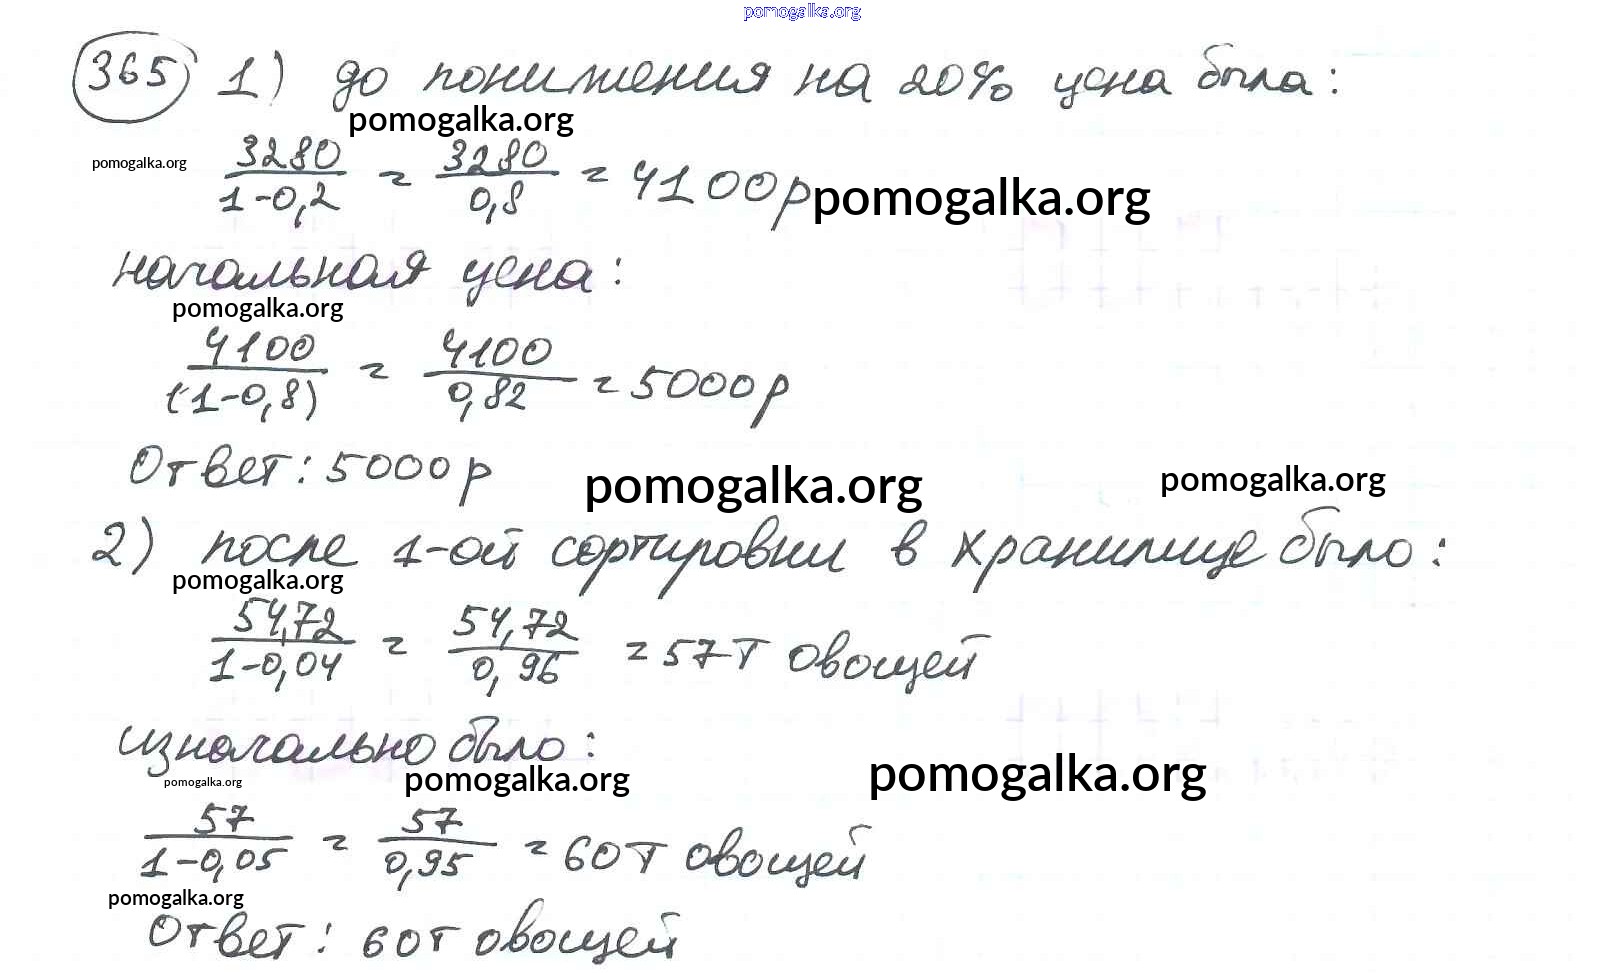 pomogalka.org
365 1) до понижения на 20% цена была:
pomogalka.org
pomogalka.org
3280 / 1-0,2 = 3280 / 0,8 = 4100р
pomogalka.org
начальная цена:
pomogalka.org
4100 / (1-0,8) = 4100 / 0,82 = 5000р
Ответ: 5000р
pomogalka.org
pomogalka.org
2) после 1-ой сортировки в хранилище было:
pomogalka.org
54,72 / 1-0,04 = 54,72 / 0,96 = 57т овощей
изначально было:
pomogalka.org
pomogalka.org
pomogalka.org
57 / 1-0,05 = 57 / 0,95 = 60т овощей
pomogalka.org
Ответ: 60т овощей